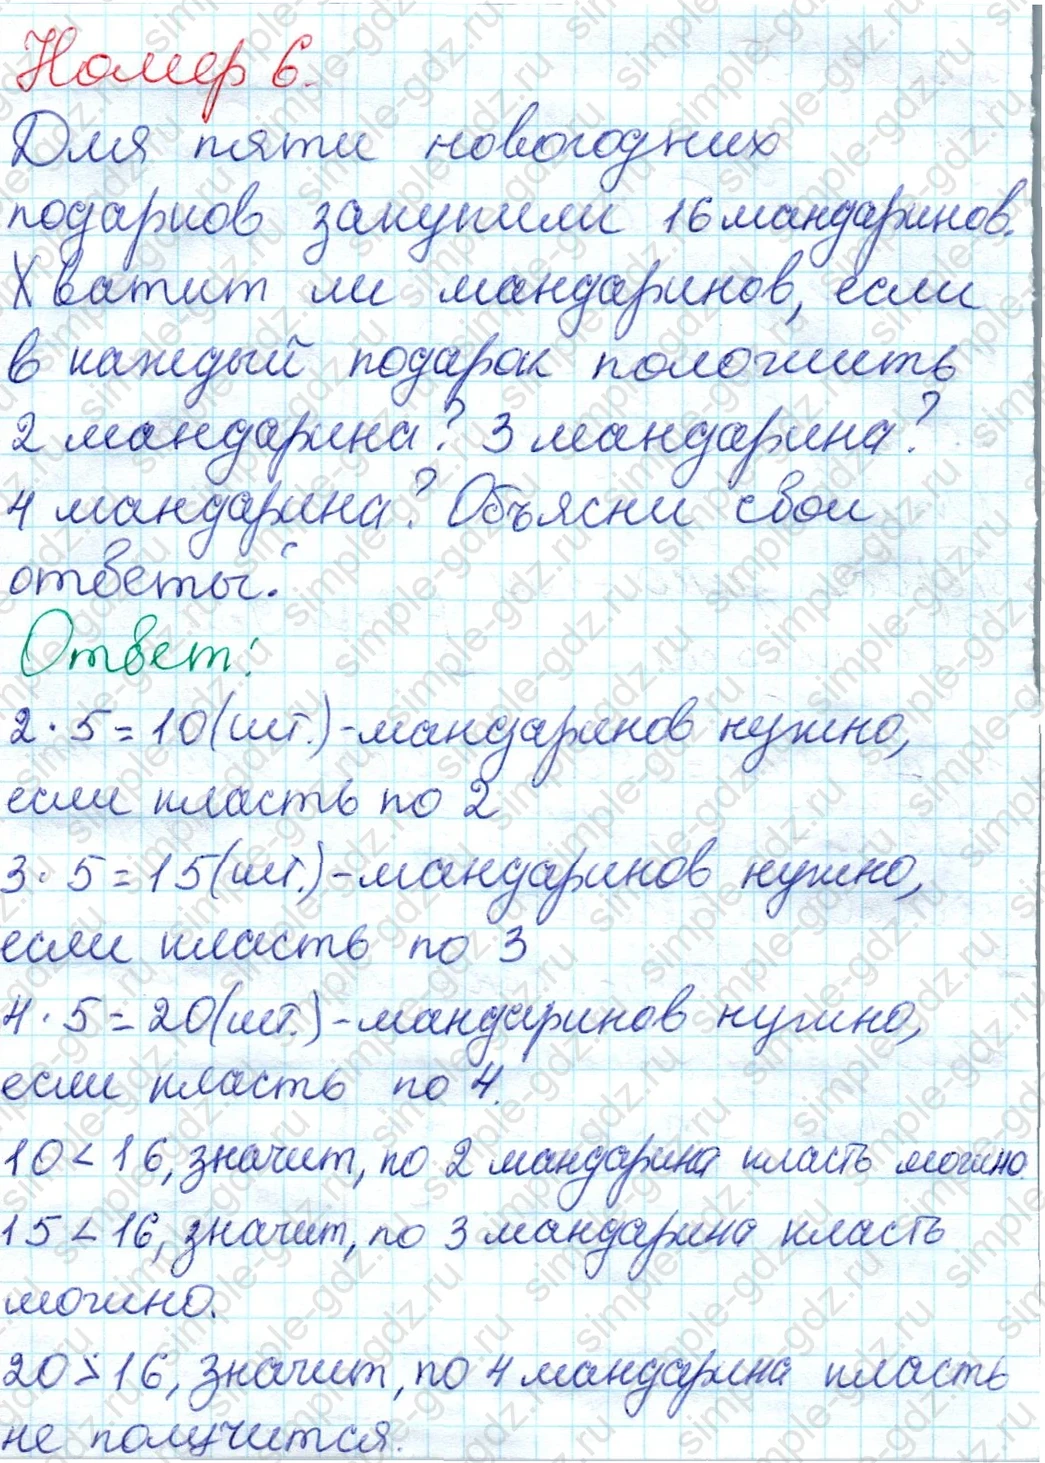 Номер 6.
Для пяти новогодних
подарков закупили 16 мандаринов.
Хватит ли мандаринов, если
в каждый подарок положить
2 мандарина? 3 мандарина?
4 мандарина? Объясни свои
ответы.
Ответ:
2 · 5 = 10 (шт.) - мандаринов нужно,
если класть по 2
3 · 5 = 15 (шт.) - мандаринов нужно,
если класть по 3
4 · 5 = 20 (шт.) - мандаринов нужно,
если класть по 4.
10 < 16, значит, по 2 мандарина класть можно.
15 < 16, значит, по 3 мандарина класть
можно.
20 > 16, значит, по 4 мандарина класть
не получится.
simple-gdz.ru